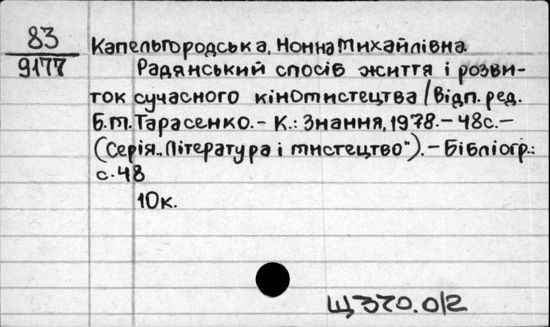 83
9177
Капельгородська, Нонна Михайлівна.
Радянський спосіб життя і розви-
ток сучасного кіномистецтва / Відп. ред.
Б.М. Тарасенко. - К.: Знання, 1978. - 48с. -
(Серія „Література і мистецтво"). - Бібліогр.:
с. 48
10к.
Щ370.0/2